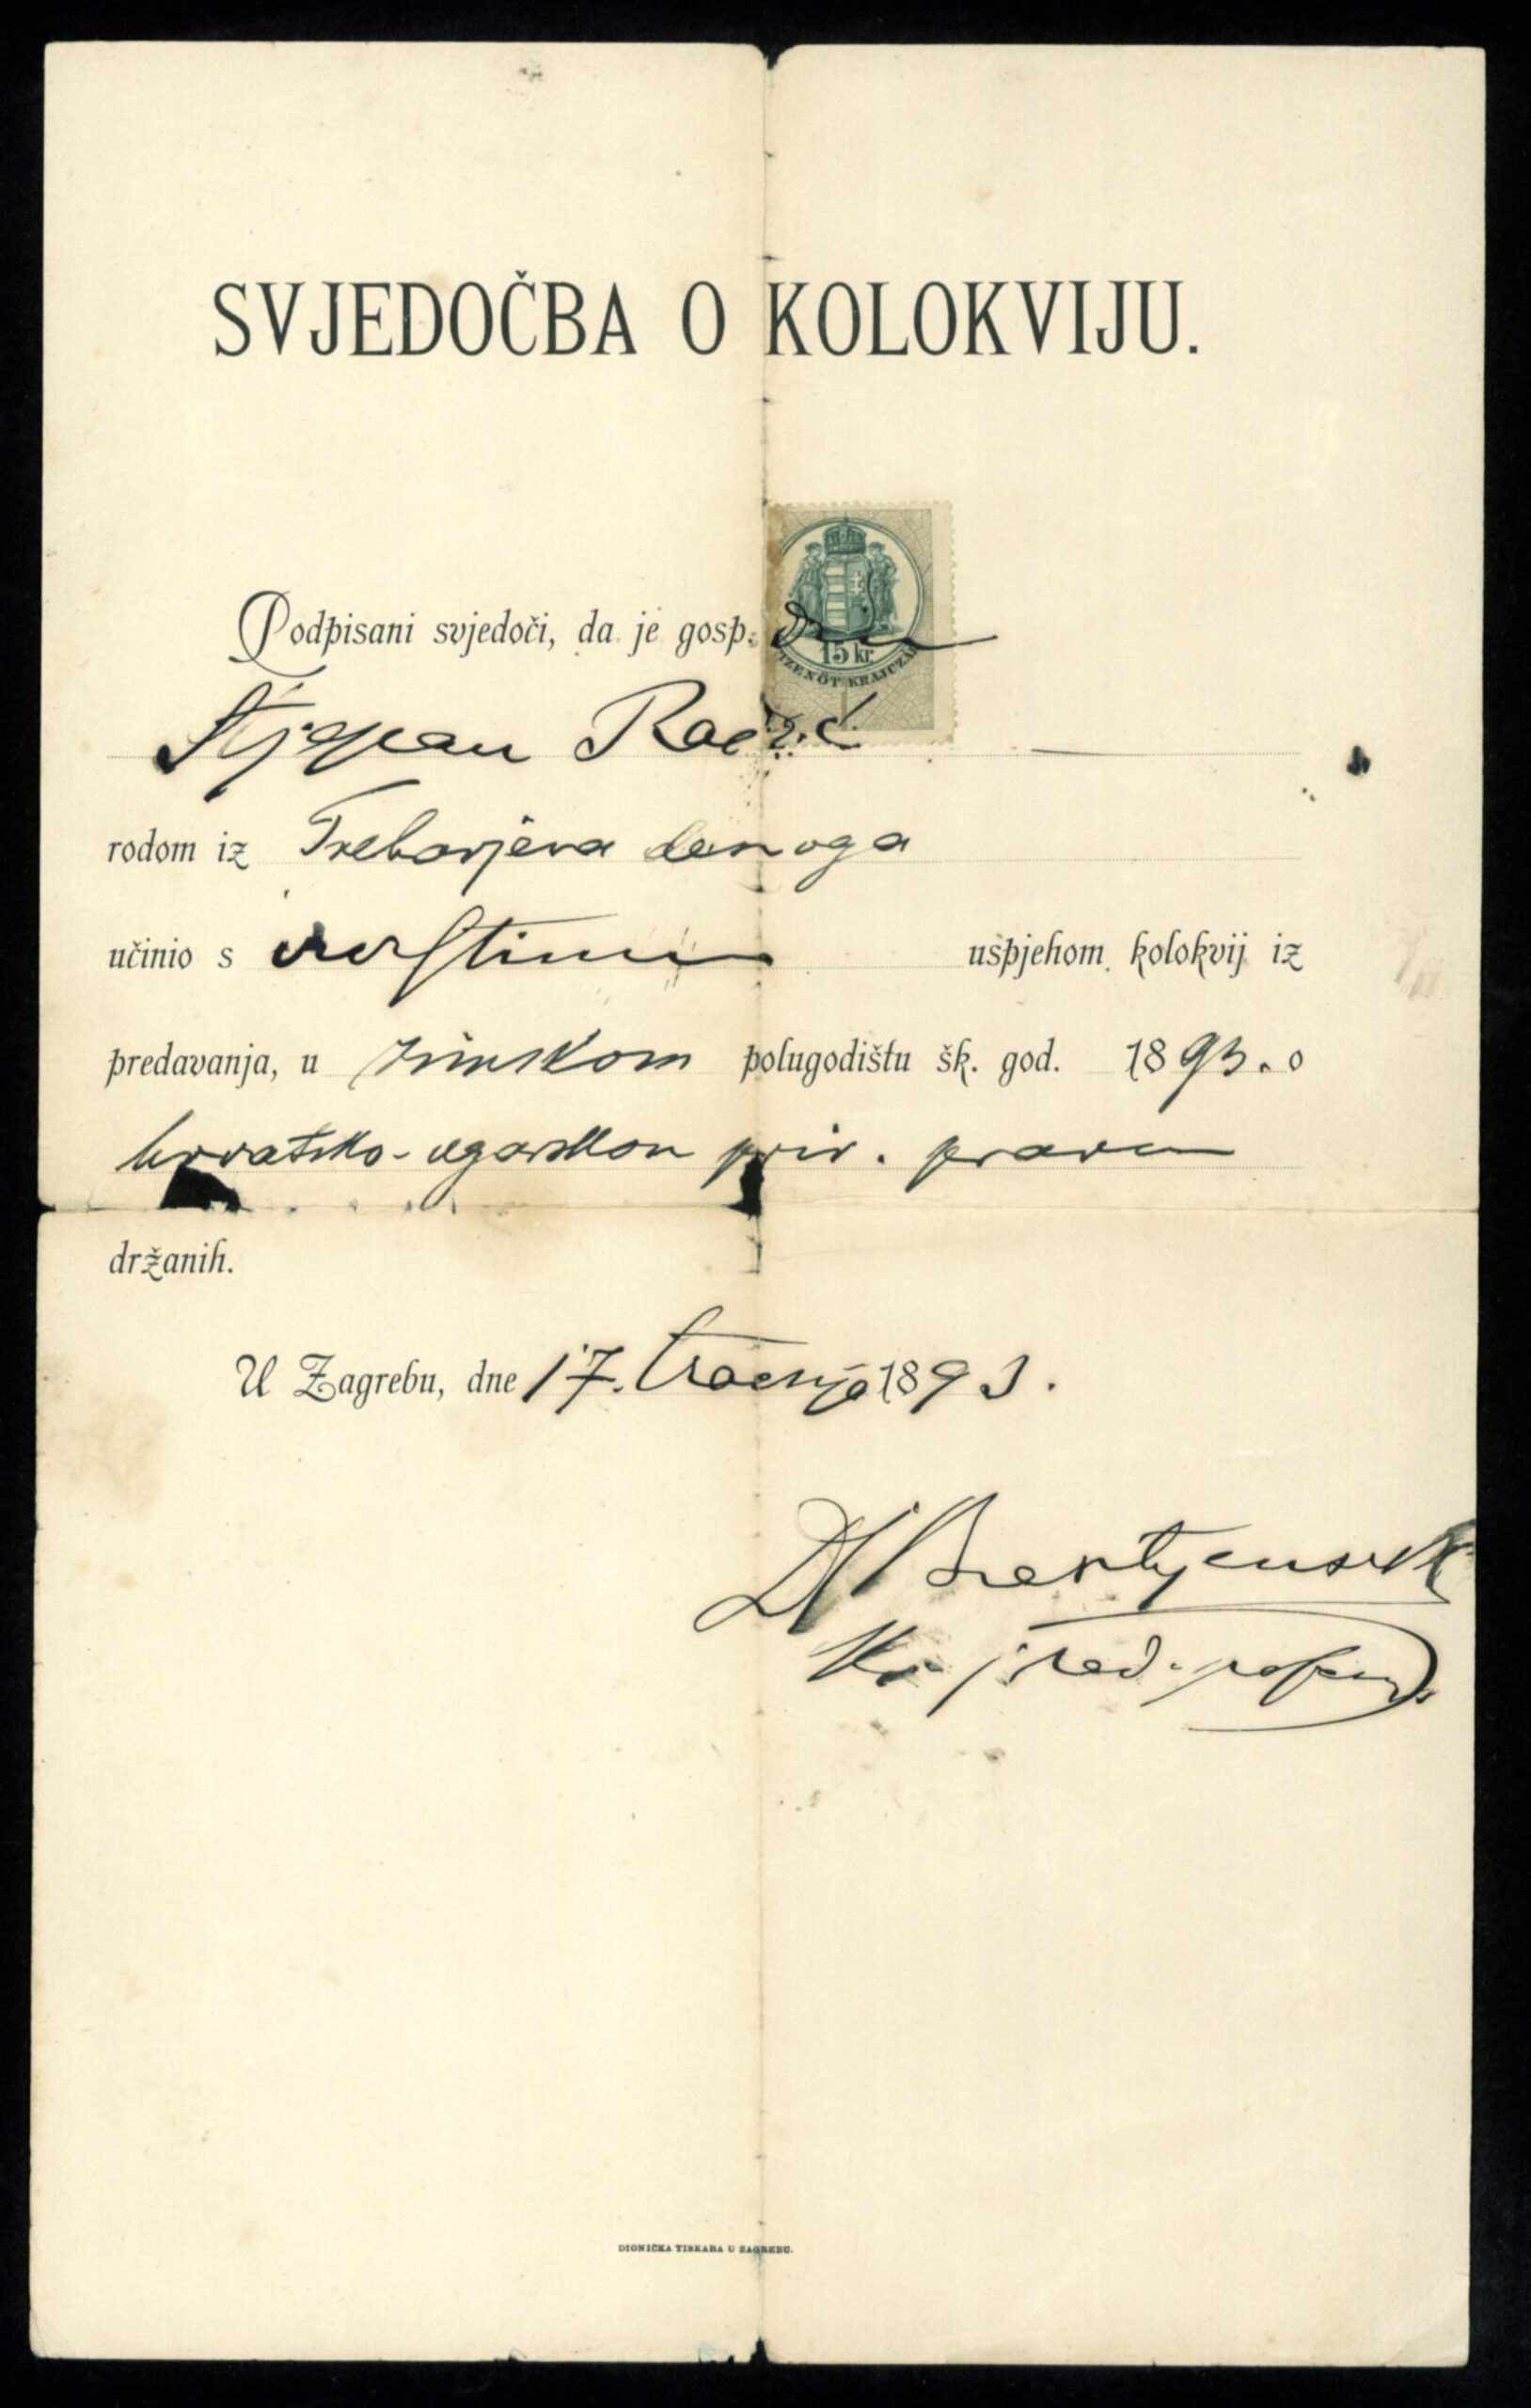 SVJEDOČBA O KOLOKVIJU.
15 kr.
TIZENÖT KRAJCZÁR
Podpisani svjedoči, da je gosp.
Stjepan Radić
rodom iz Trebarjeva desnoga
učinio s vrstnim uspjehom kolokvij iz
predavanja, u zimskom polugodištu šk. god. 1893. o
hrvatsko-ugarskom priv. pravu
držanih.
U Zagrebu, dne 17. travnja 1893.
red. profesor
DIONIČKA TISKARA U ZAGREBU.